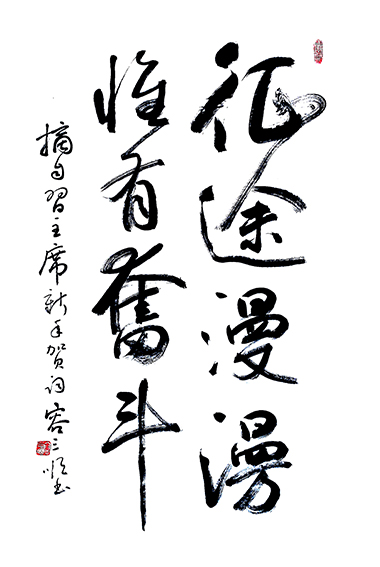 征途漫漫
惟有奋斗
摘自习主席新年贺词 容三顺书